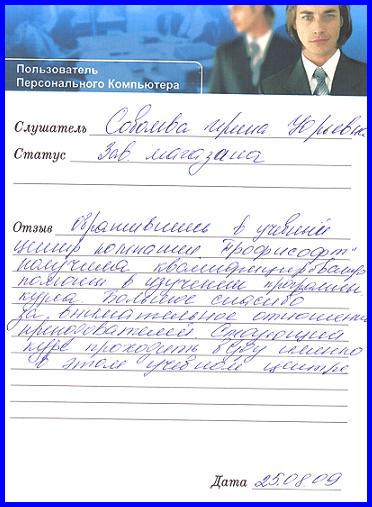 Пользователь
Персонального Компьютера
Слушатель Соболева Ирина Юрьевна
Статус Зав. магазина
Отзыв Обратившись в учебный
центр компании "Профисофт"
получила квалифицированную
помощь в изучении программ
курса. Большое спасибо
за внимательное отношение
преподавателей Следующий
курс проходить буду именно
в этом учебном центре
Дата 25.08.09